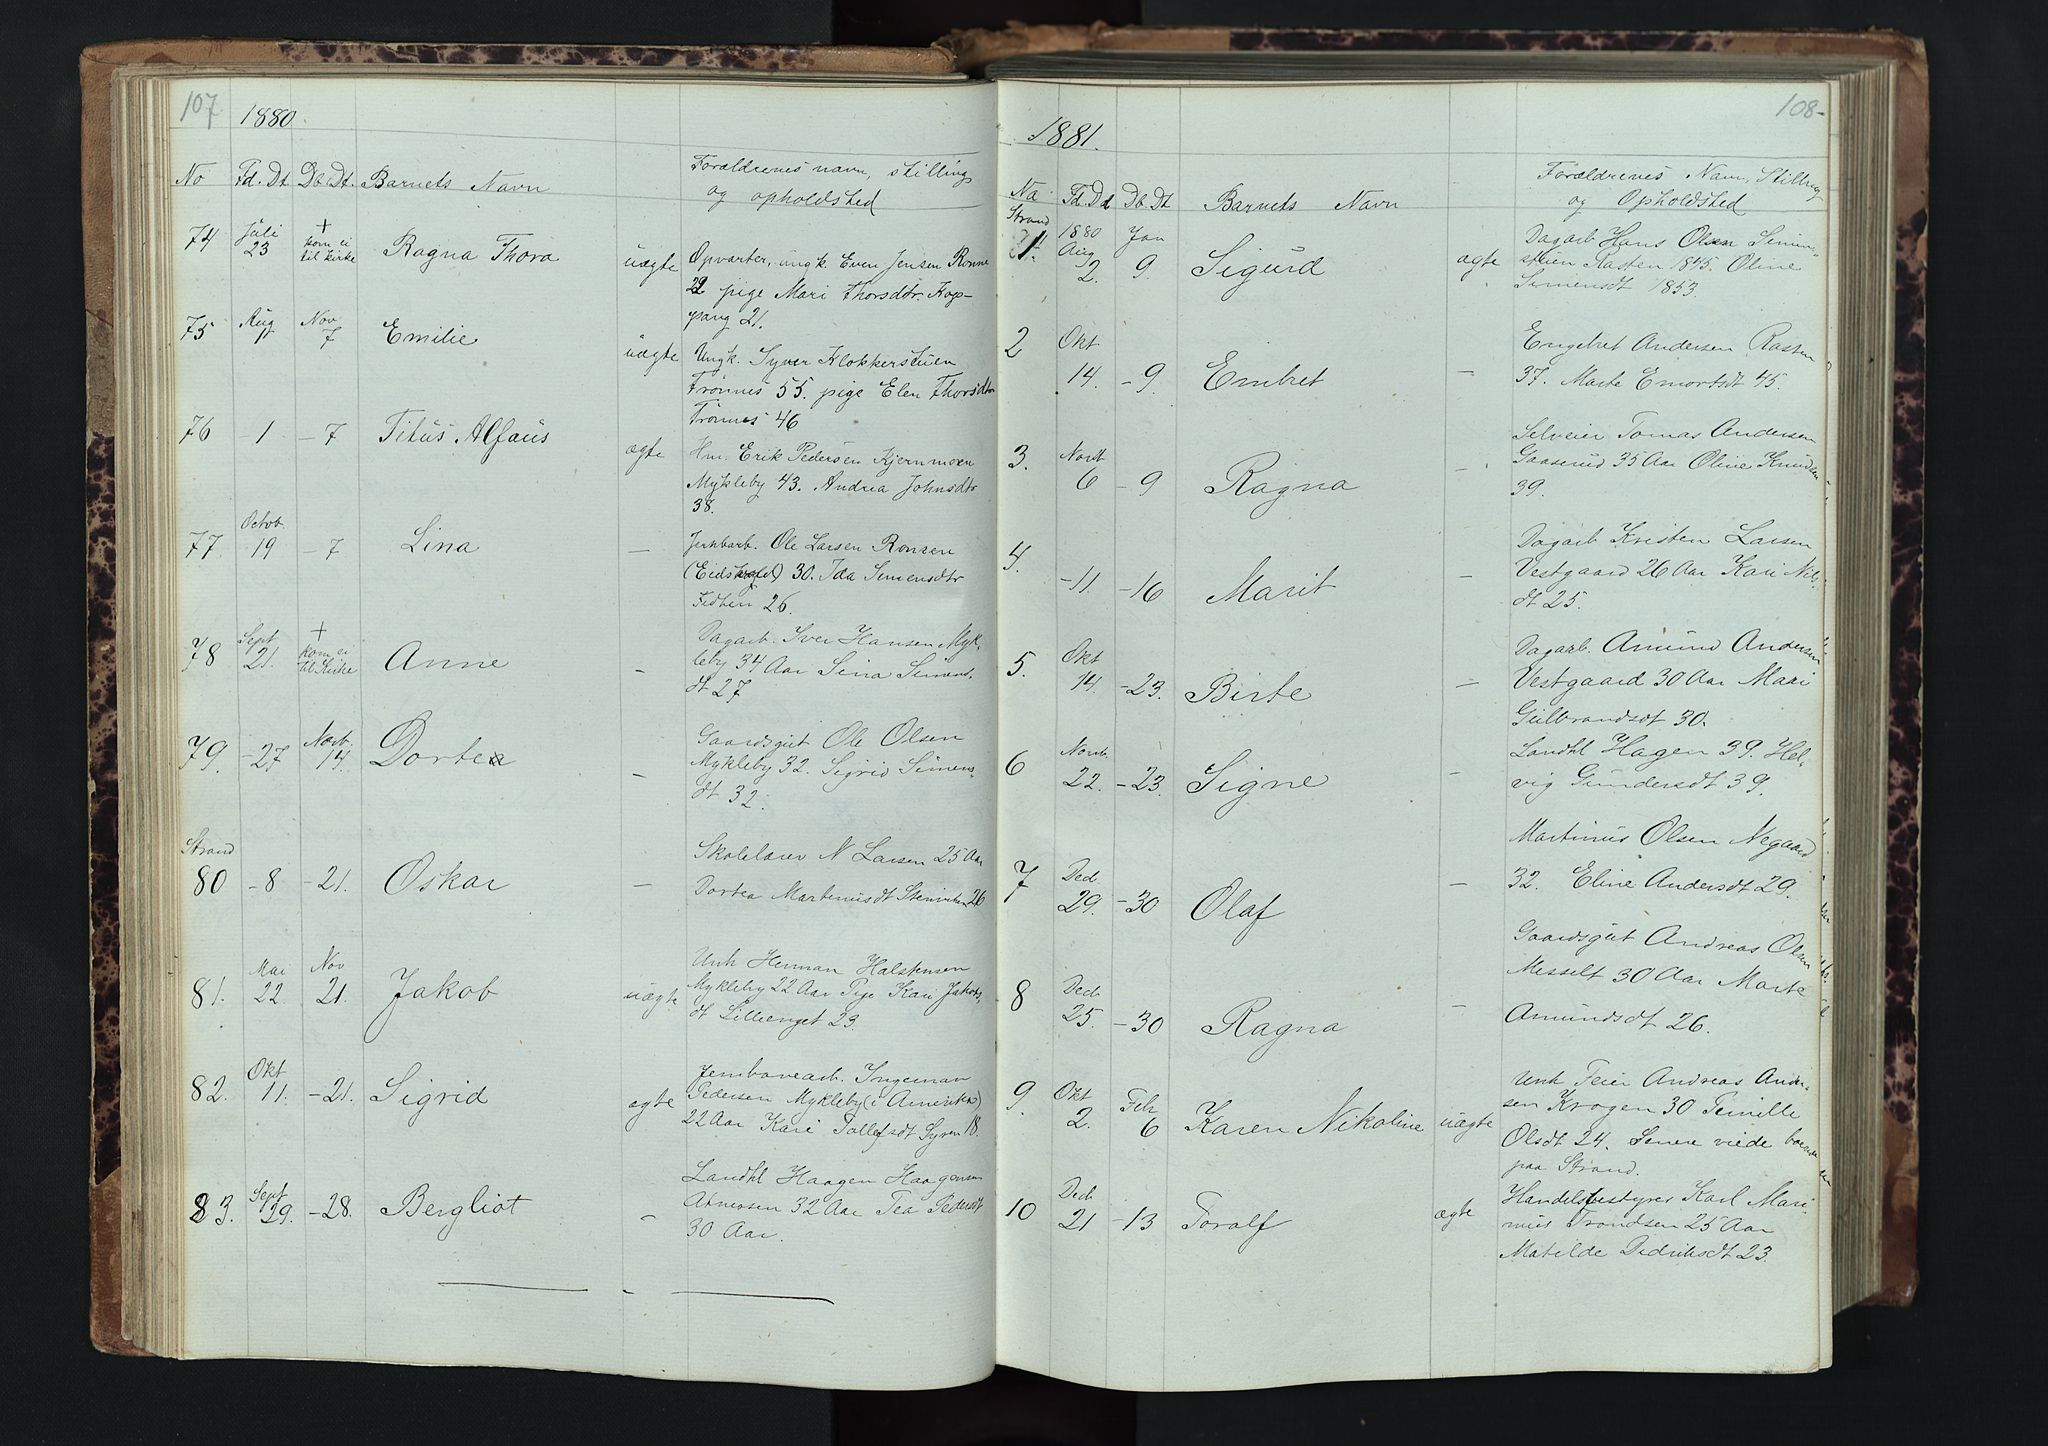 107
1880.
No Fd. Dt Db. Dt. Barnets Navn Forældrenes navn, stilling
og opholdsted
74 Juli 23 + kom ei til kirke Ragna Thora uægte Opvarter, ungk. Even Jensen Ronne
22 pige Mari Thorsdtr. Kop-
pang 21.
75 Aug 1 Nov 7 Emilie uægte Ungk. Syver Klokkerstuen
Trønnes 55. pige Elen Thorsdtr
Trønnes 46
76 -1 -7 Titus Alfaus ægte Hm. Erik Pedersen Kjernmoen
Mykleby 43. Andrea Johnsdtr
38.
77. Octob. 19 -7 Lina - Jernbarb. Ole Larsen Ronsen
(Eidsvold) 30. Ida Simensdtr
Fidten 26.
78 Sept 21. + kom ei til Kirke Anne - Dagarb. Iver Hansen Myk-
leby 34 Aar Sina Simens-
dt 27
79. -27 Novb. 14. Dortea - Gaardsgut Ole Olsen
Mykleby 32. Sigrid Simens-
dt 32.
Strand
80 -8 -21. Oskar - Skolelærer N Larsen 25 Aar
Dortea Martinusdt Stenviken 26
81. Mai 22. Nov 21. Jakob uægte Unk Herman Halstensen
Mykleby 22 Aar Pige Kari Jakobs-
dt Lillienget 23.
82. Okt 11. -21. Sigrid ægte Jernbanearb. Ingeman
Pedersen Mykleby (i Amerika)
22 Aar Kari Tollefsdt Syren 18.
83. Sept 29. -28. Bergliot - Landhl Haagen Haagensen
Atneosen 32 Aar Tea Pedersdt
30 Aar.
108-
1881.
No Fd. Dt Db Dt Barnets Navn Forældrenes Navn, Stilling
og Opholdsted
Strand
1. 1880 Aug 2. Jan 9. Sigurd ægte Dagarb Hans Olsen Simen-
stuen Rasten 1845. Oline
Simensdt 1853.
2 Okt 14. -9. Embret - Engebret Andersen Rasten
37. Marte Emortsdt 45.
3. Novb 6 -9 Ragna - Selveier Tomas Andersen
Gaaserud 35 Aar Oline Knudsen
39.
4. -11. -16 Marit - Dagarb Kristen Larsen
Vestgaard 26 Aar Kari Nils-
dt 25.
5. Okt 14. -23. Birte - Dagarb. Amund Andersen
Vestgaard 30 Aar Mari
Gulbrandsdt 30.
6 Novb. 22. -23. Signe - Landhl Hagen 39. Hel-
vig Gundersdt 39.
7 Ded 29. -30 Olaf - Martinus Olsen Negaard
32. Eline Andersdt 29.
8 Ded 25. -30 Ragna - Gaardsgut Andreas Olsen
Messelt 30 Aar Marte
Amundsdt 26.
9. Okt 2. Feb 6 Karen Nikoline uægte Unk Feier Andreas Ander-
sen Krogen 30 Pernille
Olsdt 24. Senere viede boende
paa Strand.
10 Ded 21 -13 Toralf ægte Handelsbestyrer Karl Mari-
nius Trondsen 25 Aar
Matilde Didriksdt 23.